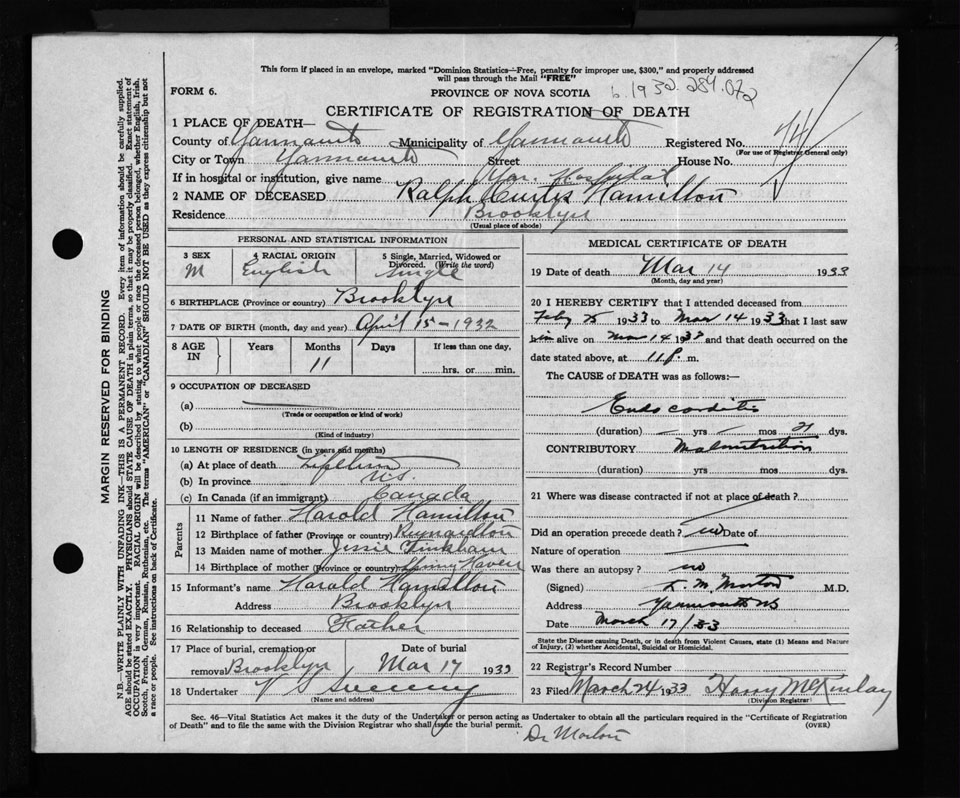 This form if placed in an envelope, marked "Dominion Statistics—Free, penalty for improper use, $300," and properly addressed
will pass through the Mail "FREE"
FORM 6.
PROVINCE OF NOVA SCOTIA
b. 1932. 284.072
CERTIFICATE OF REGISTRATION OF DEATH
1 PLACE OF DEATH—
County of Yarmouth Municipality of Yarmouth Registered No. 44
(For use of Registrar General only)
City or Town Yarmouth Street House No.
If in hospital or institution, give name Yar. Hospital
2 NAME OF DECEASED Ralph Curtis Hamilton
Residence Brooklyn
(Usual place of abode)
PERSONAL AND STATISTICAL INFORMATION
3 SEX M
4 RACIAL ORIGIN English
5 Single, Married, Widowed or Divorced. (Write the word) Single
6 BIRTHPLACE (Province or country) Brooklyn
7 DATE OF BIRTH (month, day and year) April 15 - 1932
8 AGE IN Years Months Days If less than one day,
11 hrs. or min.
9 OCCUPATION OF DECEASED
(a)
(Trade or occupation or kind of work)
(b)
(Kind of industry)
10 LENGTH OF RESIDENCE (in years and months)
(a) At place of death Lifetime
(b) In province N.S.
(c) In Canada (if an immigrant) Canada
Parents
11 Name of father Harold Hamilton
12 Birthplace of father (Province or country) Reynardton
13 Maiden name of mother Jessie Tinkham
14 Birthplace of mother (Province or country) Haven
15 Informant's name Harold Hamilton
Address Brooklyn
16 Relationship to deceased Father
17 Place of burial, cremation or removal Brooklyn Date of burial Mar 17 1933
18 Undertaker V S Sweeny
(Name and address)
MEDICAL CERTIFICATE OF DEATH
19 Date of death Mar 14 1933
(Month, day and year)
20 I HEREBY CERTIFY that I attended deceased from
Feby 25 1933 to Mar 14 1933 that I last saw
him alive on Mar 14 1933 and that death occurred on the
date stated above, at 11 P. m.
The CAUSE of DEATH was as follows:—
Endocarditis
(duration) yrs mos 21 dys.
CONTRIBUTORY Malnutrition
(duration) yrs. mos. dys.
21 Where was disease contracted if not at place of death?
Did an operation precede death? no Date of
Nature of operation
Was there an autopsy? no
(Signed) L. M. Morton M.D.
Address Yarmouth NS
Date March 17/33
State the Disease causing Death, or in death from Violent Causes, state (1) Means and Nature
of Injury, (2) whether Accidental, Suicidal or Homicidal.
22 Registrar's Record Number
23 Filed March 24 1933 Harry McKinlay
(Division Registrar)
Sec. 46—Vital Statistics Act makes it the duty of the Undertaker or person acting as Undertaker to obtain all the particulars required in the "Certificate of Registration
of Death" and to file the same with the Division Registrar who shall issue the burial permit.
(OVER)
Dr Morton
MARGIN RESERVED FOR BINDING
N.B.—WRITE PLAINLY WITH UNFADING INK—THIS IS A PERMANENT RECORD. Every item of information should be carefully supplied.
AGE should be stated EXACTLY. PHYSICIANS should STATE CAUSE OF DEATH in plain terms, so that it may be properly classified. Exact statement of
OCCUPATION is very important. RACIAL ORIGIN will be described by stating to what people or race the deceased person belonged, whether English, Irish,
Scotch, French, German, Russian, Ruthenian, etc. The terms "AMERICAN" or "CANADIAN" SHOULD NOT BE USED as they express citizenship but not
a race or people. See instructions on back of Certificate.